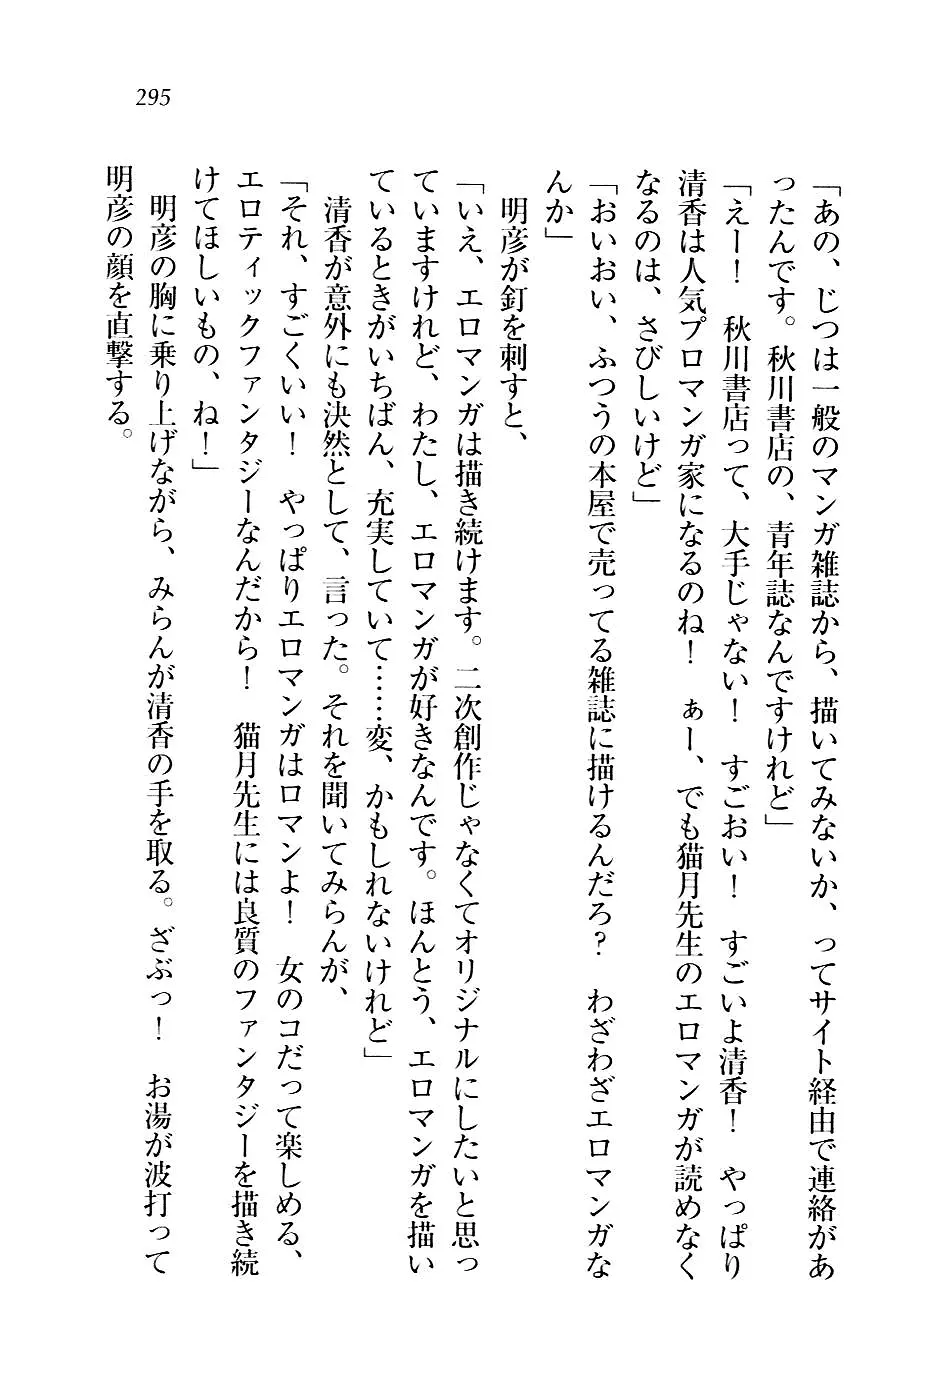 295
「あの、じつは一般のマンガ雑誌から、描いてみないか、ってサイト経由で連絡があ
ったんです。秋川書店の、青年誌なんですけれど」
「えー！　秋川書店って、大手じゃない！　すごおい！　すごいよ清香！　やっぱり
清香は人気プロマンガ家になるのね！　ぁー、でも猫月先生のエロマンガが読めなく
なるのは、さびしいけど」
「おいおい、ふつうの本屋で売ってる雑誌に描けるんだろ？　わざわざエロマンガな
んか」
　明彦が釘を刺すと、
「いえ、エロマンガは描き続けます。二次創作じゃなくてオリジナルにしたいと思っ
ていますけれど、わたし、エロマンガが好きなんです。ほんとう、エロマンガを描い
ているときがいちばん、充実していて……変、かもしれないけれど」
　清香が意外にも決然として、言った。それを聞いてみらんが、
「それ、すごくいい！　やっぱりエロマンガはロマンよ！　女のコだって楽しめる、
エロティックファンタジーなんだから！　猫月先生には良質のファンタジーを描き続
けてほしいもの、ね！」
　明彦の胸に乗り上げながら、みらんが清香の手を取る。ざぶっ！　お湯が波打って
明彦の顔を直撃する。